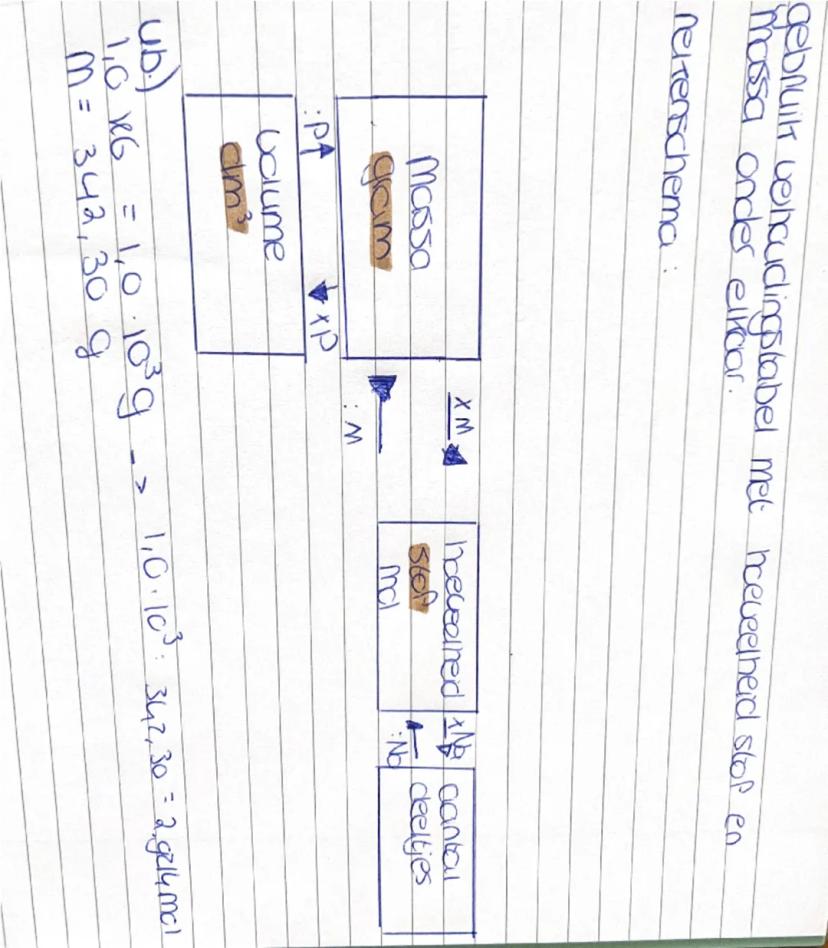 gebruik verhoudingstabel met hoeveelheid stof en
massa onder elkaar.
rekenschema:
massa
gram
x M
: M
hoeveelheid
stof
mol
x Na
: Na
aantal
deeltjes
: ρ
x ρ
volume
dm³
4b.)
1,0 KG = 1,0 · 10³ g -> 1,0 · 10³ : 342,30 = 2,9214 mol
M = 342,30 g